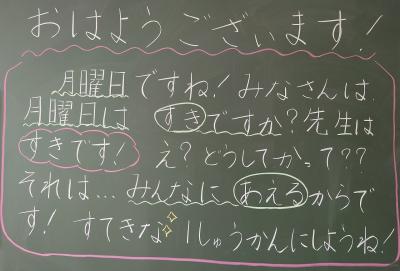 おはようございます！
月曜日ですね！みなさんは
月曜日はすきですか？先生は
すきです！え？どうしてかって？？
それは…みんなにあえるからで
す！すてきな1しゅうかんにしようね！